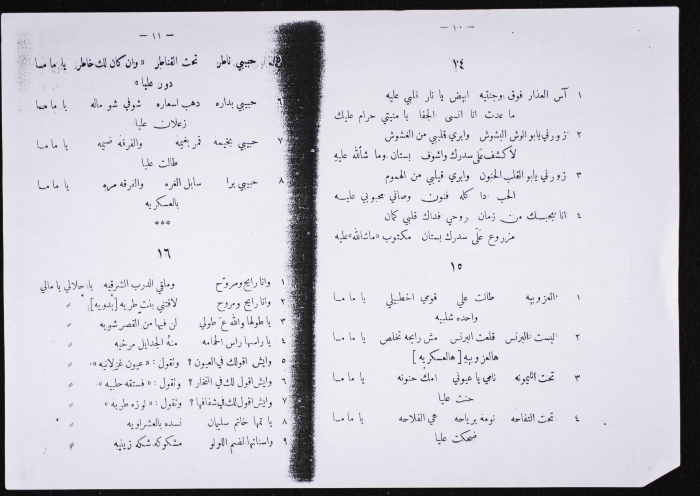 — ١٠ —
٢٤
١ آس العذار فوق وجنتيه ابيض يا نار قلبي عليه
ما عدت انا انسى الجفا يا منيتي حرام عليك
٢ زورني يابو الوش البشوش وابري قلبي من الغشوش
لأكشف على صدرك واشوف بستان وما شاألله عليه
٣ زورني يابو القلب الحنون وابري قلبي من الهموم
الحب دا كله فنون وصافي محبوبي عليه
٤ انا بحبك من زمان روحي فداك قلبي كمان
مزروع على صدرك بستان مكتوب «ماشاالله» عليه
١٥
١ العزوبيه طالت علي قومي اخطبيلي يا ما مـا
واحده شلبيه
٢ لبست البرنس قلعت البرنس مش رايحه تخلص يا ما مـا
هالعزوبيه [هالعسكريه]
٣ تحت الليمونه نامي يا عيوني امك حنونه يا ما مـا
حنت عليا
٤ تحت التفاحه نومة برياحه هي الفلاحه يا ما مـا
ضحكت عليا
— ١١ —
حبيبي ناطر تحت القناطر «وان كان لك خاطر يا ما مـا
دور عليا»
٦ حبيبي بداره دهب اسعاره شوفي شو ماله يا ما مـا
زعلان عليا
٧ حبيبي بخيمه قمر بغيمه والفرقه ضيمه يا ما مـا
طالت عليا
٨ حبيبي برا سايل الغره والفرقه مره يا ما مـا
بالعسكريه
***
١٦
١ وانا رايح ومروح وماقي الدرب الشرقيه يا حلالي يا مالي
٢ وانا رايح ومروح لاقتني بنت طريه [بدويه] »
٣ يا طولها والله ع طولي لن فيها من القصر شويه »
٤ يا راسها راس الحمامه منه الجدايل مرخيه »
٥ وايش اقولك في العيون؟ وتقول: «عيون غزلانيه» »
٦ وايش اقول لك في النخار؟ وتقول: «فستقه حلبيه» »
٧ وايش اقول لك في شفافها؟ وتقول: «لوزه طريه» »
٨ يا تمها خاتم سليمان نسده بالعشراويه »
٩ واسنانها لضم اللولو مشكوكه شكه زينيه »